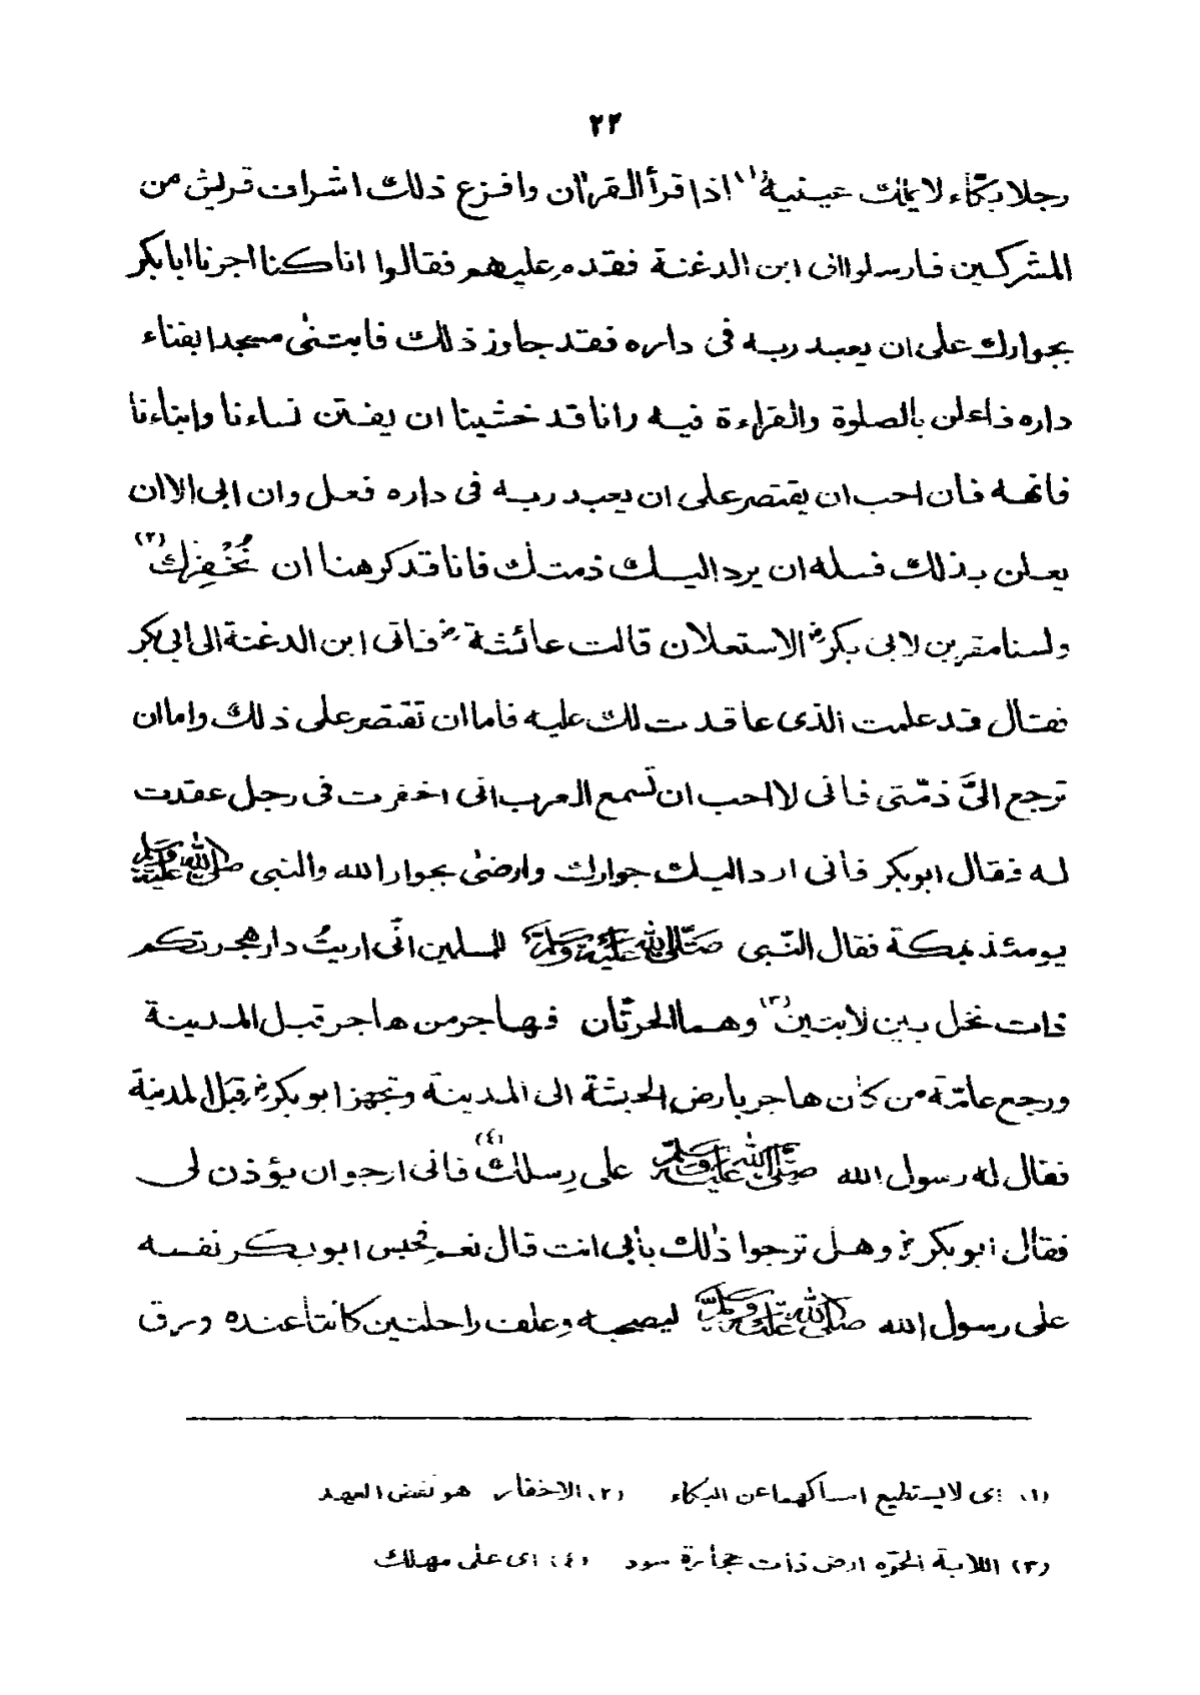 ٢٢
رجلا بكّاء لا يملك عينيه(١) اذا قرأ القرآن وافزع ذلك اشراف قريش من
المشركين فارسلوا الى ابن الدغنة فقدم عليهم فقالوا انا كنا اجرنا ابا بكر
بجوارك على ان يعبد ربه فى داره فقد جاوز ذلك فابتنى مسجدا بفناء
داره فاعلن بالصلوة والقراءة فيه وانا قد خشينا ان يفتن نساءنا وابناءنا
فانهه فان احب ان يقتصر على ان يعبد ربه فى داره فعل وان ابى الا ان
يعلن بذلك فسله ان يرد اليك ذمتك فانا قد كرهنا ان نُخْفِرك(٢)
ولسنا مقرين لابى بكرؓ الاستعلان قالت عائشةؓ فاتى ابن الدغنة الى ابى بكر
فقال قد علمت الذى عاقدت لك عليه فاما ان تقتصر على ذلك واما ان
ترجع الىَّ ذمّتى فانى لا احب ان تسمع العرب انى اخفرت فى رجل عقدت
له فقال ابوبكر فأنى ارد اليك جوارك وارضىٰ بجوار الله والنبى صلى الله عليه وسلم
يومئذ بمكة فقال النّبى صلى الله عليه وسلم للمسلمين انّى اريتُ دار هجرتكم
ذات نخل بين لابتين(٣) وهما الحرتّان فهاجر من هاجر قبل المدينة
ورجع عامّة من كان هاجر بارض الحبشة الى المدينة وتجهز ابو بكرؓ قبل المدينة
فقال له رسول الله صلى الله عليه وسلم على رِسلك(٤) فانى ارجو ان يؤذن لى
فقال ابو بكرؓ وهل ترجوا ذٰلك بأبى انت قال نعم فحبس ابو بكر نفسه
على رسول الله صلى الله عليه وسلم ليصحبه وعلف راحلتين كانتا عنده ورق
(١) اى لا يستطيع امساكهما عن البكاء (٢) الاخفار هو نقض العهد
(٣) اللابة الحرّه ارض ذات حجارة سود (٤) اى على مهلك